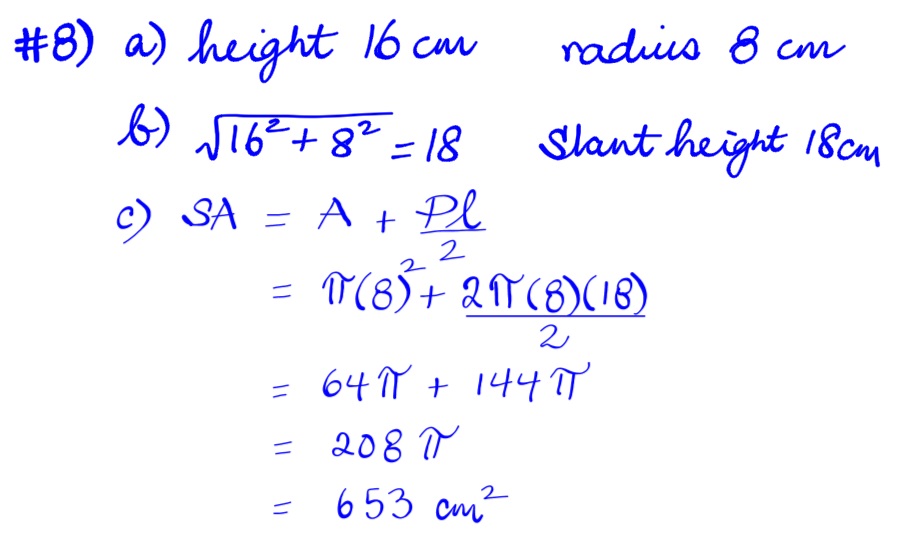 #8) a) height 16 cm radius 8 cm
b) √16² + 8² = 18 Slant height 18cm
c) SA = A + Pl/2
= π(8)² + 2π(8)(18)/2
= 64π + 144π
= 208π
= 653 cm²